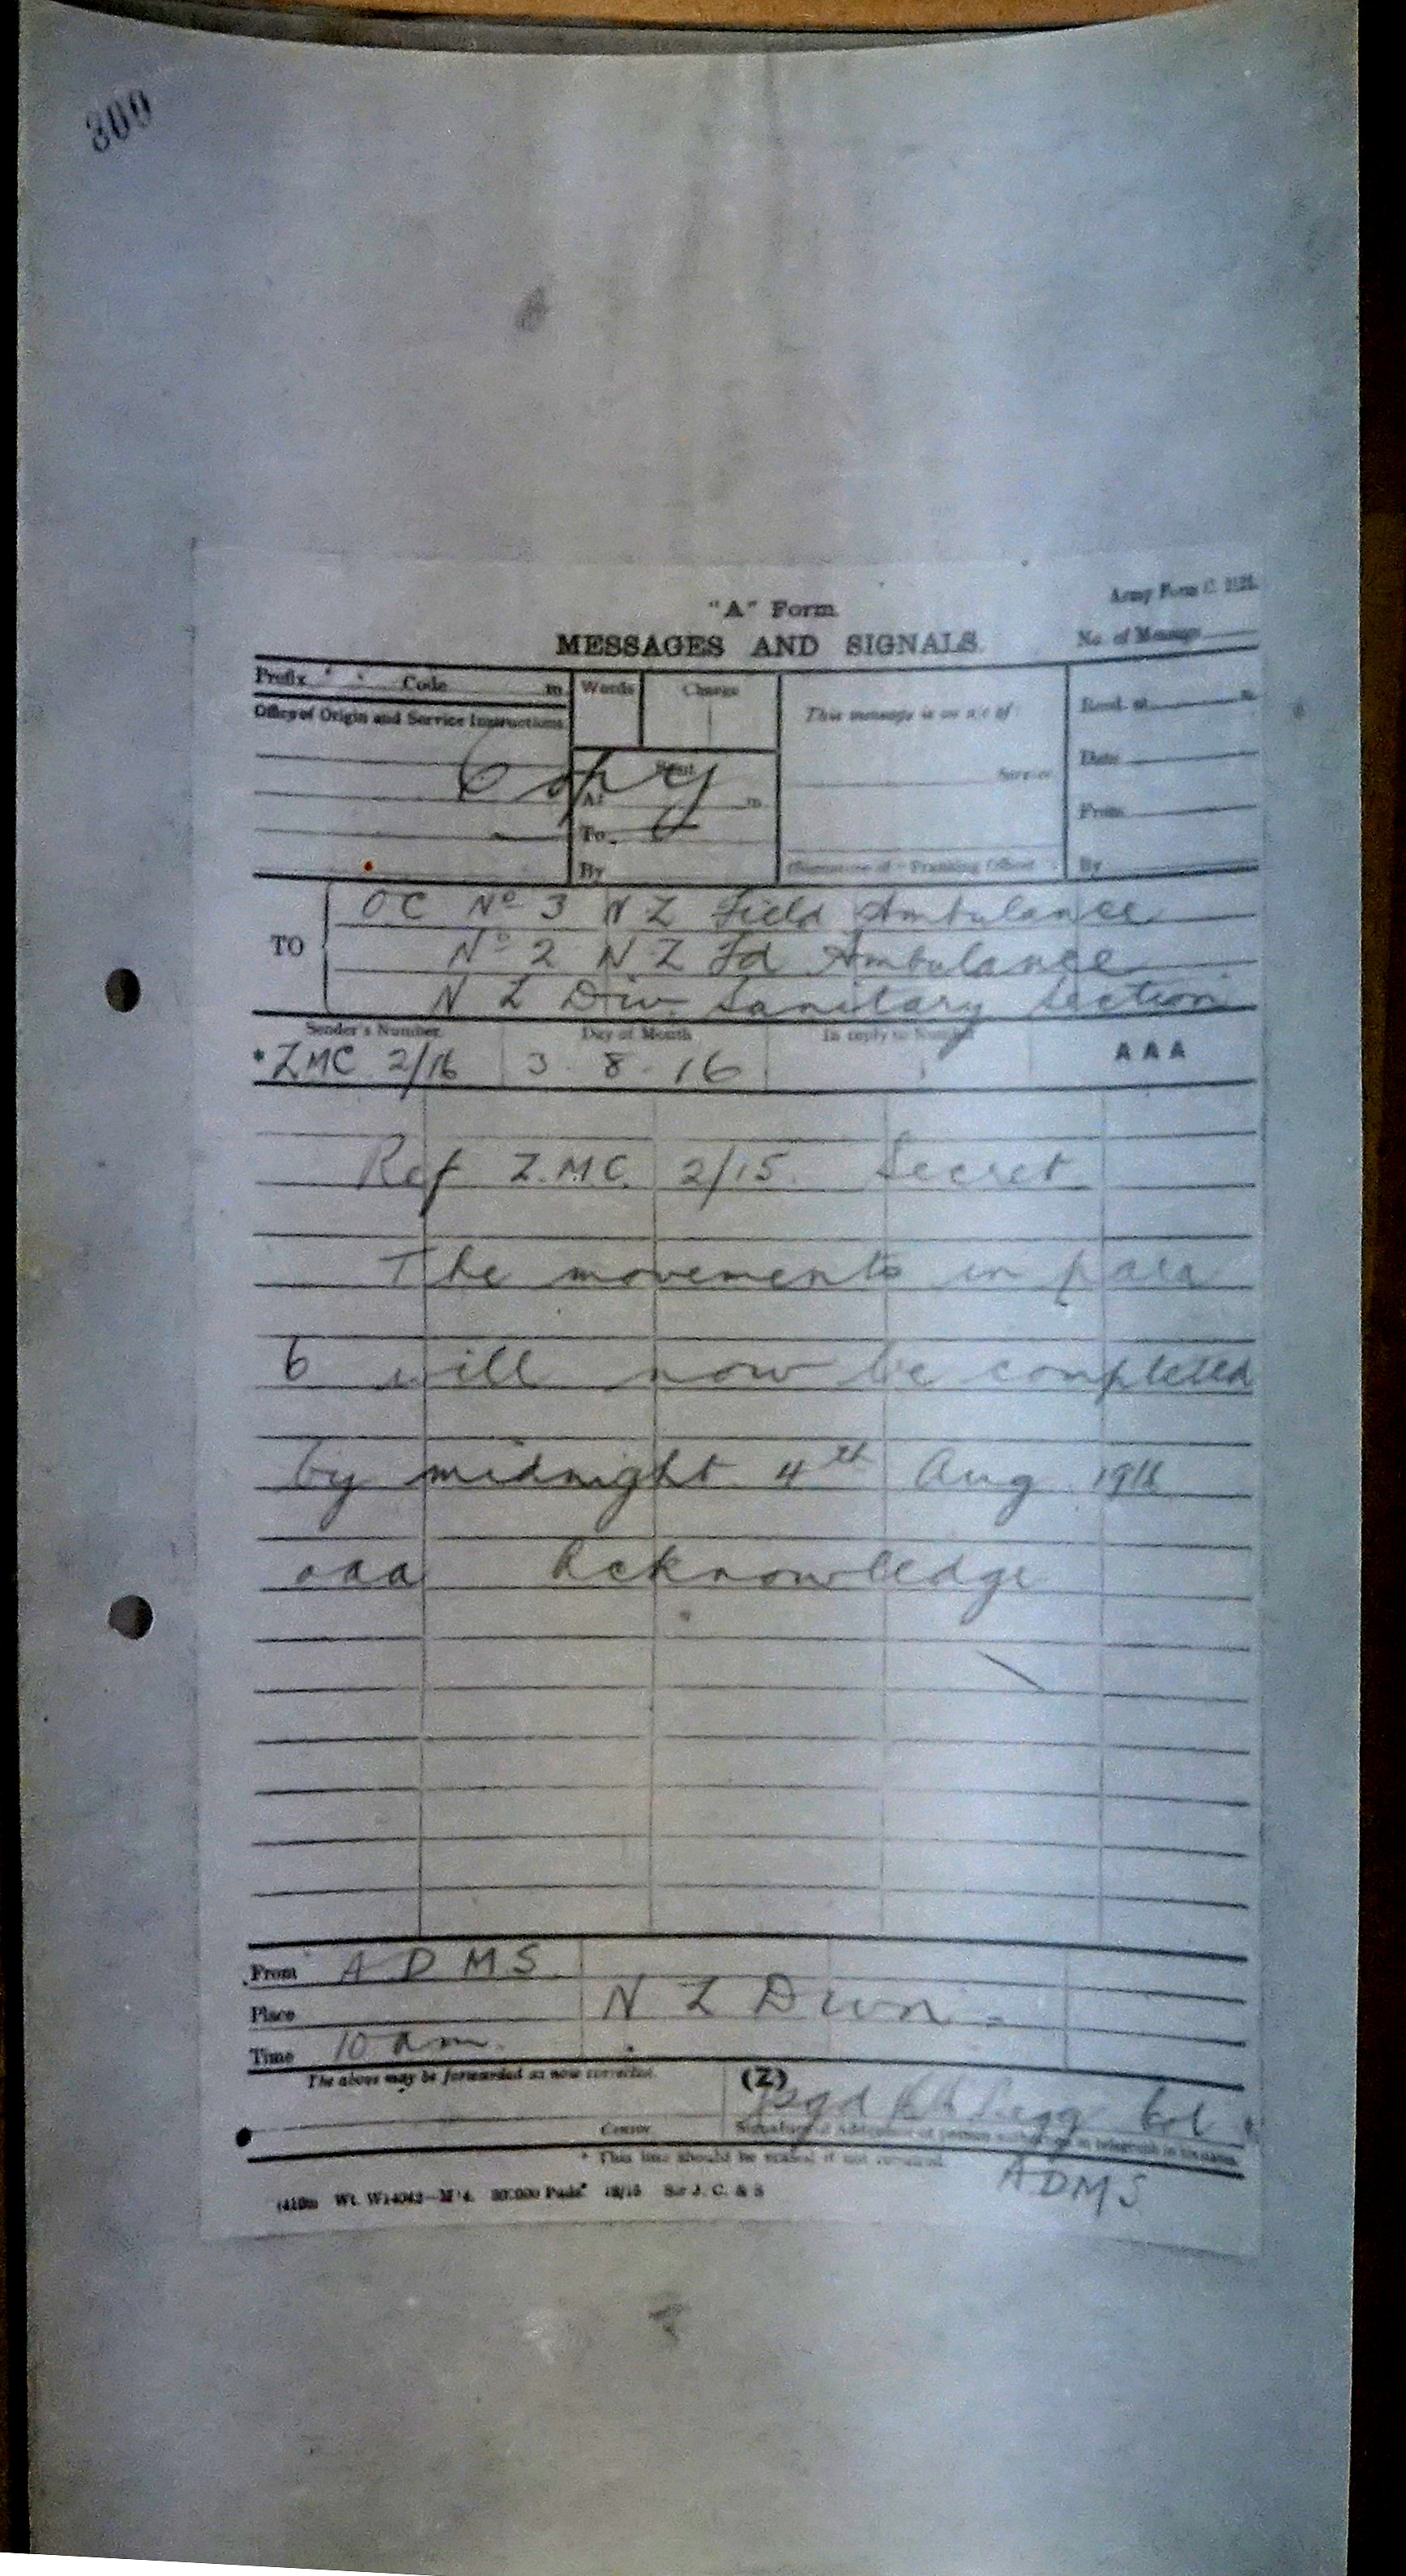 300
"A" Form
Army Form C. 2121.
MESSAGES AND SIGNALS.
No. of Message
Prefix Code m
Words Charge
This message is on a/c of
Recd. at m
Office of Origin and Service Instructions
Copy
Sent
Service
Date
At m
From
To
By
(Signature of "Franking Officer")
By
TO
OC No 3 NZ Field Ambulance
No 2 NZ Fd Ambulance
NZ Div. Sanitary Section
Sender's Number Day of Month In reply to Number
* ZMC 2/16 3 . 8 . 16 AAA
Ref Z.M.C. 2/15. Secret
The movements in para
6 will now be completed
by midnight 4th Aug 1916
aaa Acknowledge
From A D M S
Place N Z Divn
Time 10 am.
The above may be forwarded as now corrected. (Z)
Sgd Col
Censor. Signature of Addressor or person authorised to telegraph in his name.
* This line should be erased if not required.
ADMS